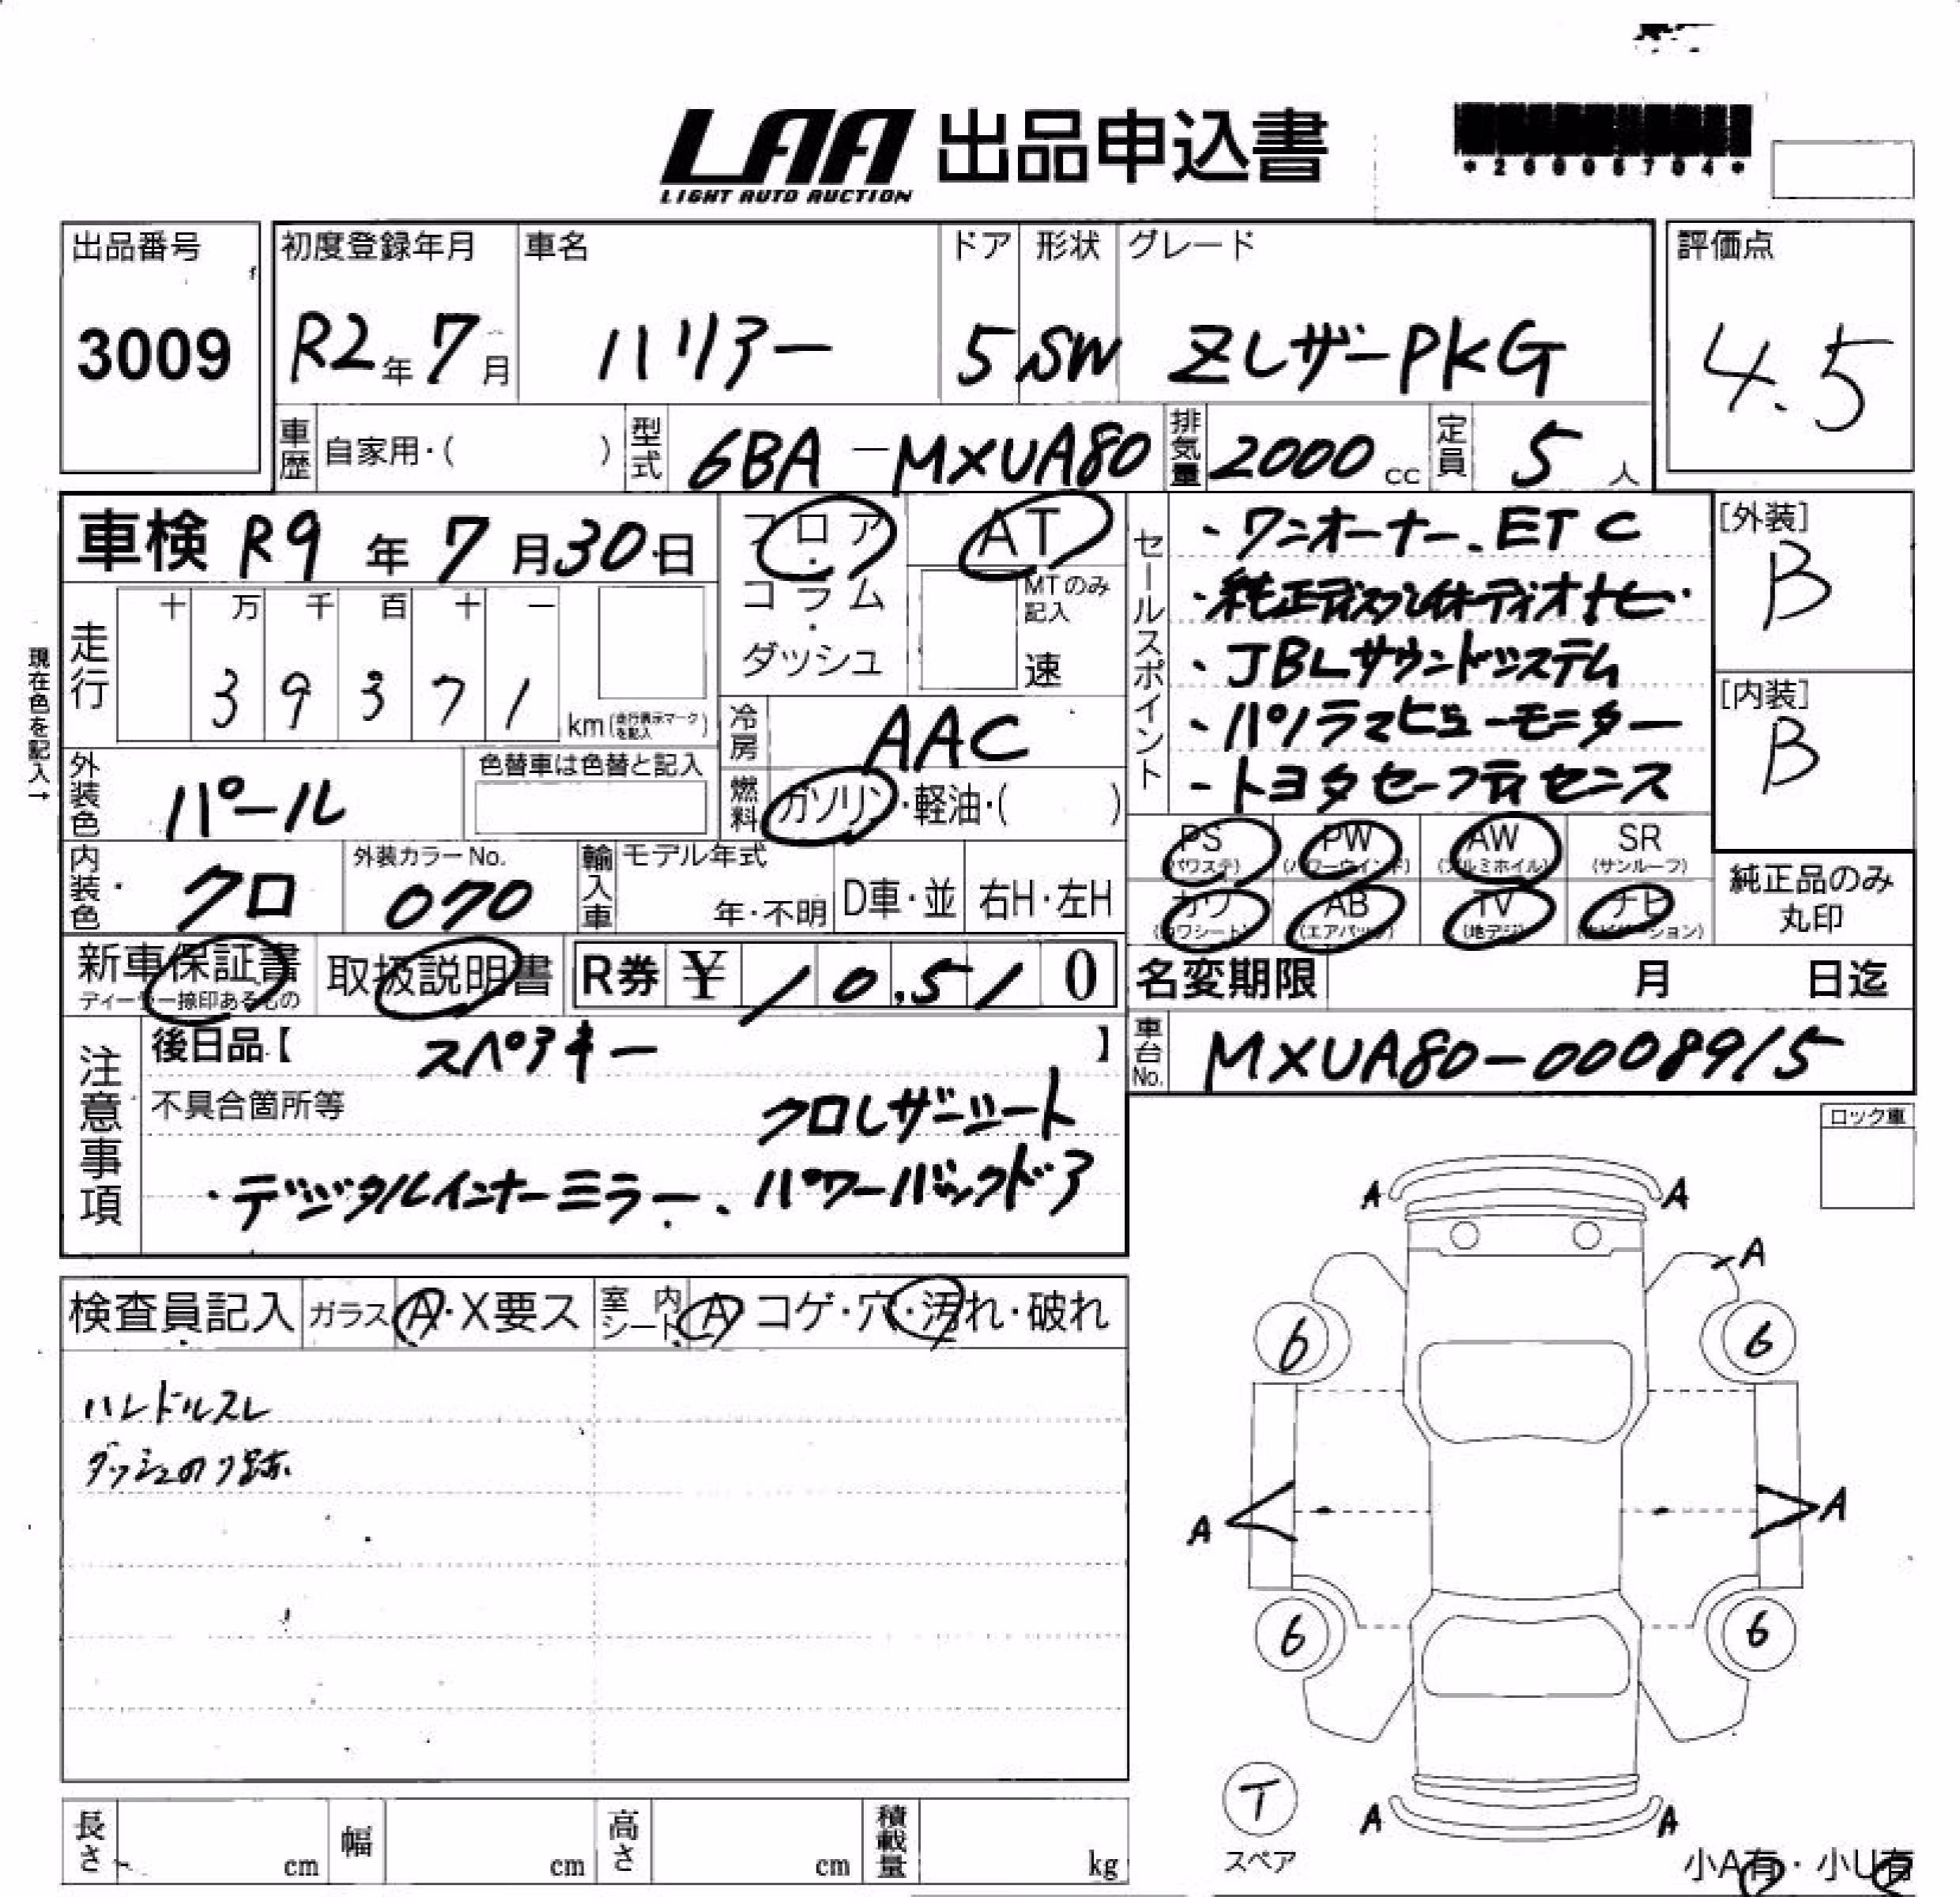 LAA 出品申込書
LIGHT AUTO AUCTION
*26006704*
出品番号
3009
初度登録年月 車名 ドア 形状 グレード
R2年7月 ハリアー 5 SW ZレザーPKG
評価点
4.5
車歴 自家用・( ) 型式 6BA-MXUA80 排気量 2000cc 定員 5人
車検 R9年7月30日
フロア・コラム・ダッシュ
AT
MTのみ記入
速
セールスポイント
・ワンオーナー.ETC
・純正ディスプレイオーディオナビ・
・JBLサウンドシステム
・パノラマビューモニター
・トヨタセーフティセンス
[外装]
B
[内装]
B
現在色を記入→
走行 十 万 千 百 十 一
39371 km(走行表示マークを記入)
冷房 AAC
外装色 パール 色替車は色替と記入
燃料 ガソリン・軽油・( )
内装色 クロ 外装カラーNo. 070
輸入車 モデル年式 年・不明 D車・並 右H・左H
PS(パワステ) PW(パワーウインド) AW(アルミホイル) SR(サンルーフ)
カワ(カワシート) AB(エアバック) TV(地デジ) ナビ(ナビゲーション)
純正品のみ丸印
新車保証書 ディーラー捺印あるもの 取扱説明書 R券 ¥ 10,510
名変期限 月 日迄
車台No. MXUA80-0008915
注意事項
後日品【 スペアキー 】
不具合箇所等 クロレザーシート
・デジタルインナーミラー、パワーバックドア
ロック車
検査員記入 ガラス A・X要ス 室内シート A コゲ・穴・汚れ・破れ
ハンドルスレ
ダッシュのり跡
A A
A
6 6
A A
6 6
T
スペア
A A
小A有・小U有
長さ cm 幅 cm 高さ cm 積載量 kg